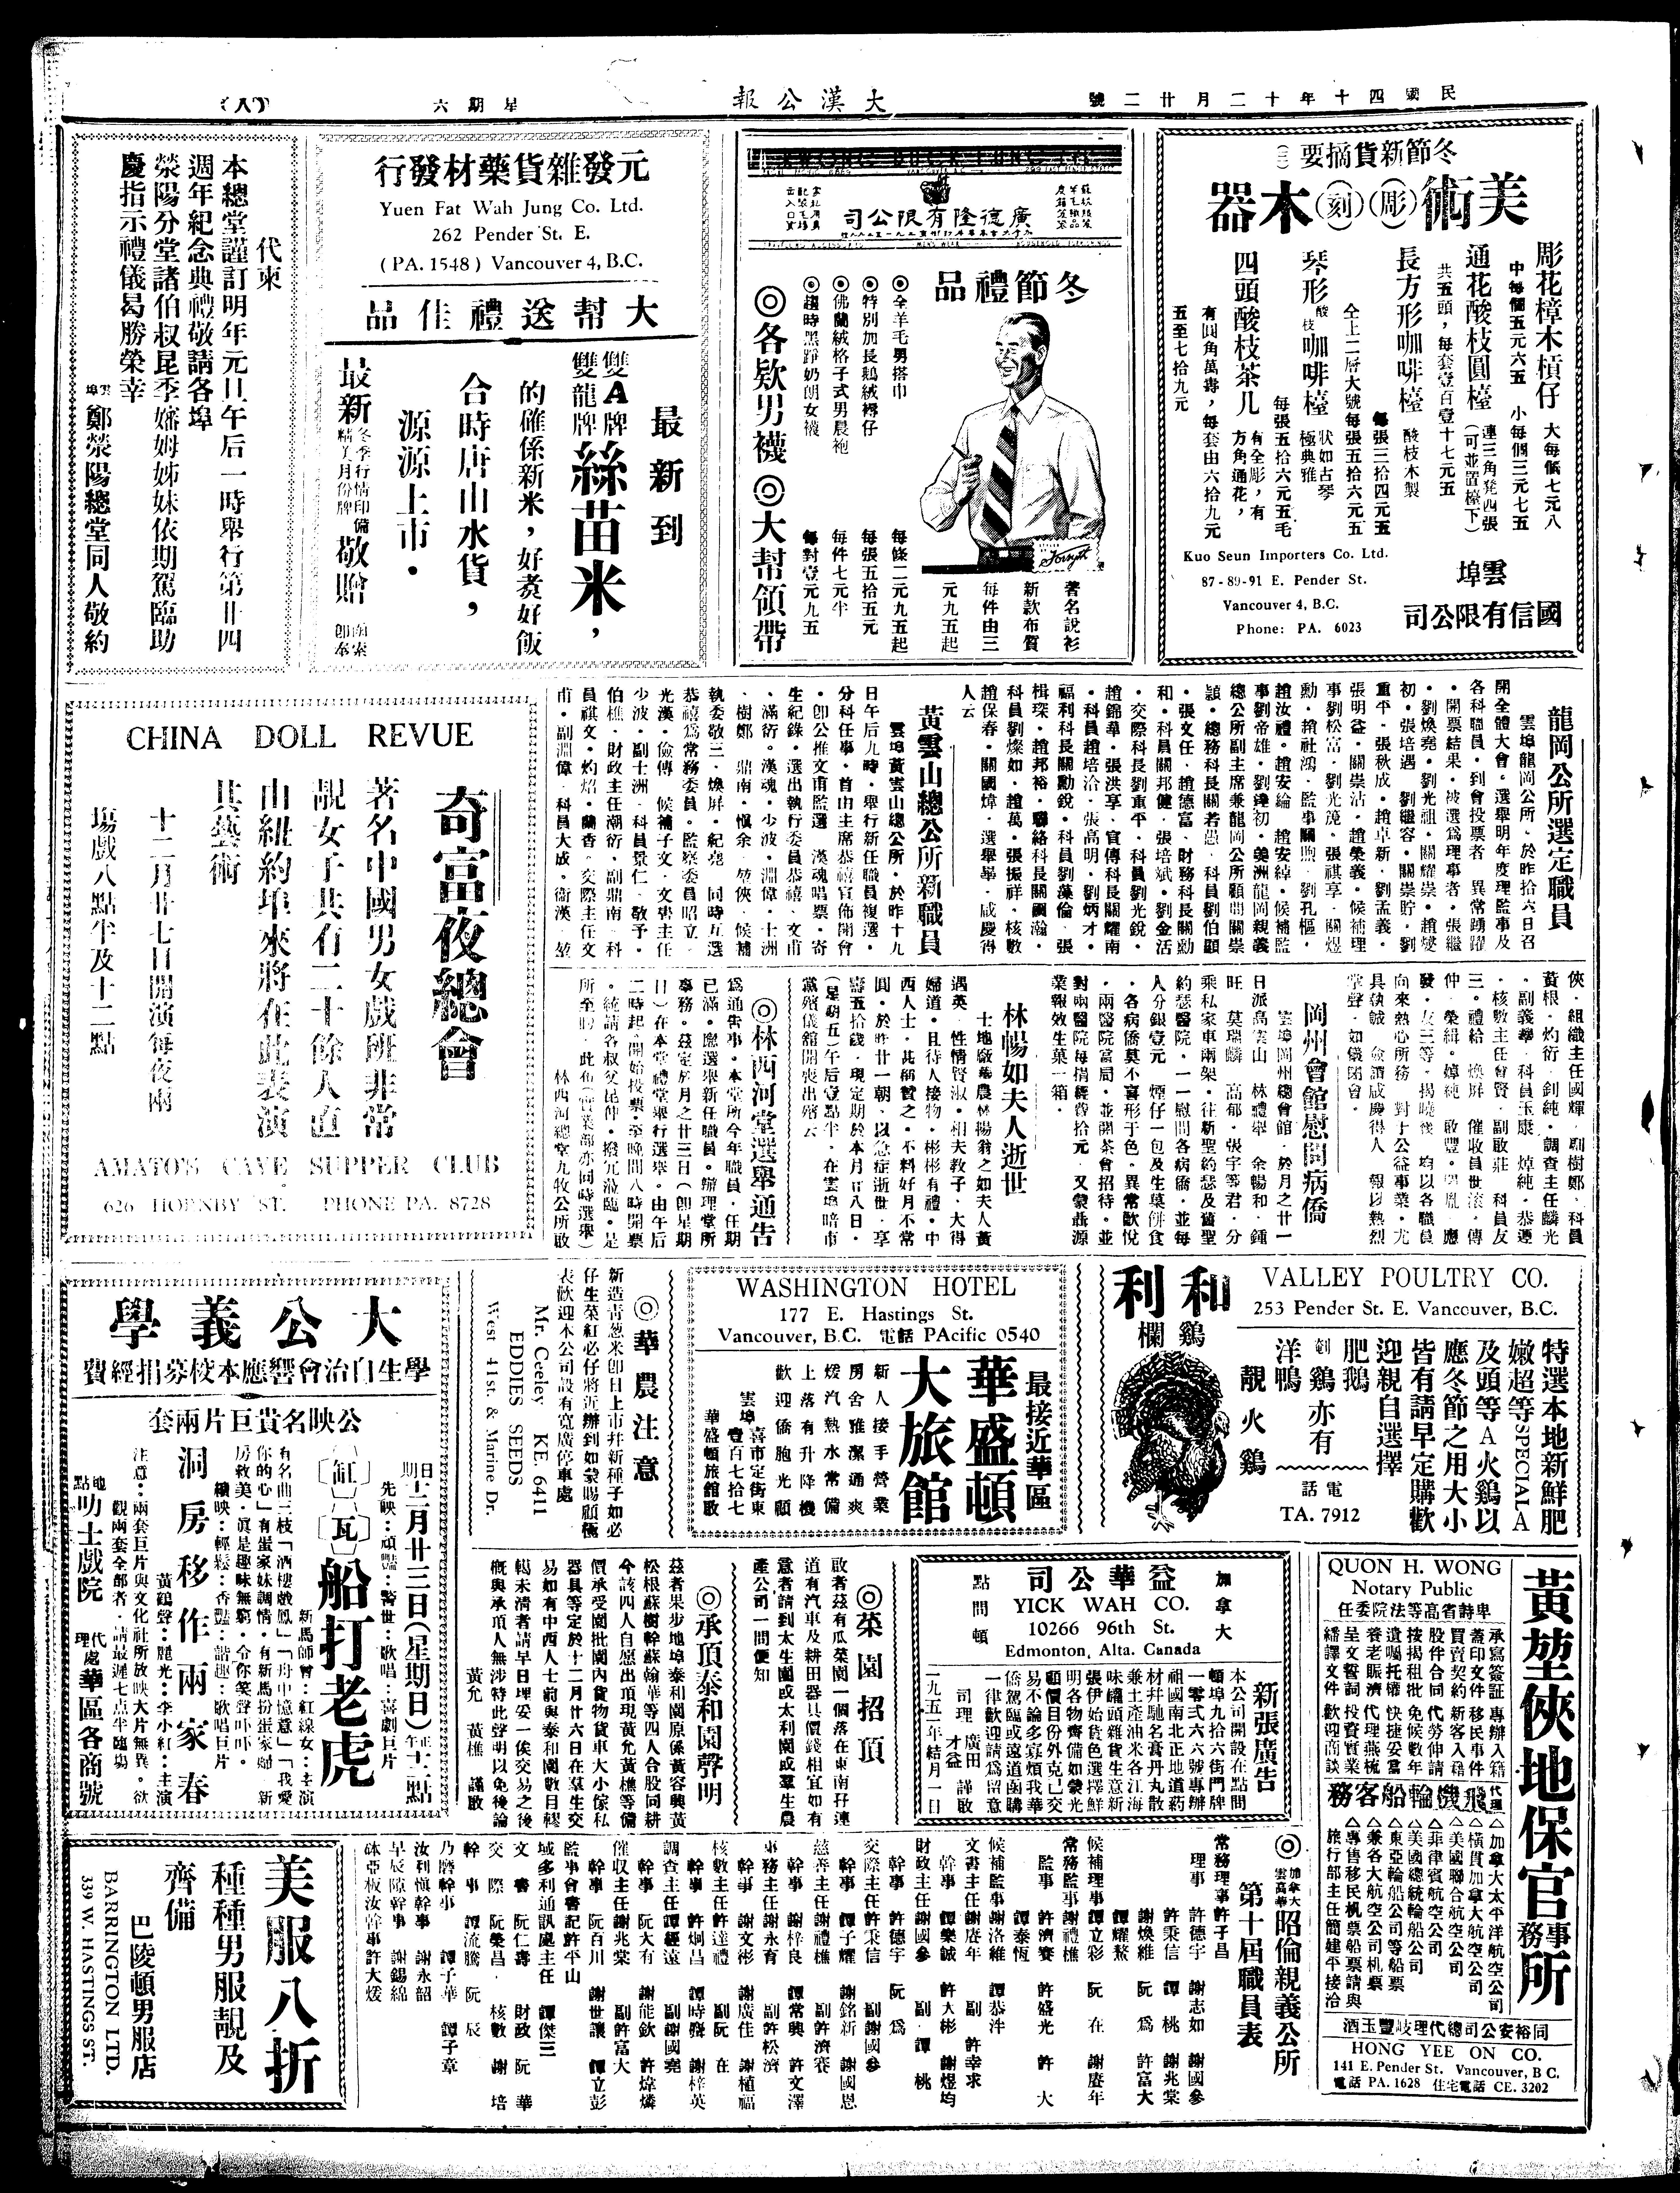 民國四十年十二月廿二號
大漢公報
星期六
(八)
冬節新貨摘要(三)
美術(彫)(刻)木器
彫花樟木槓仔 大每個七元八
中每個五元六五 小每個三元七五
通花酸枝圓檯 連三角凳四張(可並置檯下)
共五頭，每套壹百壹十七元五
長方形咖啡檯 酸枝木製
每張三拾四元五
仝上二層大號每張五拾六元五
琴形酸枝咖啡檯 狀如古琴極典雅
每張五拾六元五毛
四頭酸枝茶几 有全彫，有方角通花，
有圓角萬壽，每套由六拾九元
五至七拾九元
Kuo Seun Importers Co. Ltd.
87-89-91 E. Pender St.
Vancouver 4, B.C.
Phone: PA. 6023
雲埠
國信有限公司
廣德隆有限公司
冬節禮品
◎全羊毛男搭巾 每條二元九五起
◎特別加長鵝絨褥仔 每張五拾五元
◎佛蘭絨格子式男晨袍 每件七元半
◎趨時黑踭奶朗女襪 每對壹元九五
◎各欵男襪◎大幫領帶
Forsyth
著名說衫
新款布質
每件由三
元九五起
元發雜貨藥材發行
Yuen Fat Wah Jung Co. Ltd.
262 Pender St. E.
(PA. 1548) Vancouver 4, B.C.
大幫送禮佳品
最新到
雙A牌
雙龍牌
絲苗米，
的確係新米，好煑好飯
合時唐山水貨，
源源上市．
最新冬季行情印備精美月份牌敬贈 函索即奉
代柬
本總堂謹訂明年元旦午后一時舉行第廿四
週年紀念典禮敬請各埠
滎陽分堂諸伯叔昆季嬸姆姊妹依期駕臨助
慶指示禮儀曷勝榮幸
雲埠鄭滎陽總堂同人敬約
龍岡公所選定職員
雲埠龍岡公所．於昨拾六日召
開全體大會。選舉明年度理監事及
各科職員．到會投票者．異常踴躍
．開票結果．被選爲理事者．張繼
．劉煥堯．劉光祖．關耀崇．趙燮
初．張培遇．劉繼容．關崇貯．劉
重平．張秋成．趙卓新．劉孟義．
張明益．關崇沾．趙榮義．候補理
事劉松富．劉光茂．張祺享．關煜
勳．趙社鴻．監事關煦．劉孔樞．
趙汝禮．趙安綸．趙安綽．候補監
事劉帝雄．劉鋒初．美洲龍岡親義
總公所副主席兼龍岡公所顧問關崇
頴．總務科長關若愚．科員劉伯顯
．張文任．趙德富．財務科長關勳
和．科員關邦健．張培斌．劉金活
．交際科長劉重平．科員劉光銳．
趙錦華．張洪享．宣傳科長關耀南
．科員趙培洽．張高明．劉炳才．
福利科長關勳銳．科員劉藻倫．張
楫琛．趙邦裕．聯絡科長關國瀚．
科員劉燦如．趙萬．張振祥．核數
趙保春．關國煒．選舉畢．咸慶得
人云
黃雲山總公所新職員
雲埠黃雲山總公所．於昨十九
日午后九時．舉行新任職員複選．
分科任事．首由主席恭禧宣佈開會
．即公推文甫監選．漢魂唱票．寄
生紀錄．選出執行委員恭禧．文甫
．滿衍．漢魂．少波．淵偉．士洲
．樹鄭．鼎南．愼余．堃俠．候補
執委敬三．煥屏．紀堯．同時互選
恭禧爲常務委員。監察委員昭立．
光漢．儉傳．候補子文．文書主任
少波．副士洲．科員景仁．敬予．
伯樵．財政主任潮衍．副鼎南．科
員祺文．灼炤．蘭香．交際主任文
甫．副淵偉．科員大成．衛漢．堃
俠．組織主任國輝．副樹鄭．科員
黃根．灼衍．釗純．調查主任麟光
．副義舉．科員玉康．焯純．恭運
．核數主任會賢．副啟莊．科員友
三。禮給．煥屏．催收員世滾．傳
仲．榮緝。婥純．啟豐。錫胤．應
發．友三等．揭曉後．均以各職員
向來熱心所務．對于公益事業．尤
具執誠．僉謂咸慶得人．報以熱烈
掌聲．如儀閉會．
岡州會館慰問病僑
雲埠岡州總會館．於月之廿一
日派高雲山．林禮舉．余暢和．鍾
旺．莫瑞麟．高郁．張字等君．分
乘私家車兩架．往新聖約瑟及舊聖
約瑟醫院．一一慰問各病僑．並每
人分銀壹元．煙仔一包及生菓餅食
．各病僑莫不喜形于色．異常歡悅
．兩醫院當局．並開茶會招待。並
對兩醫院每捐經費拾元．又蒙聯源
業報效生菓一箱．
林暢如夫人逝世
士地厰華農林暢翁之如夫人黃
遇英．性情賢淑．相夫教子．大得
婦道．且待人接物．彬彬有禮．中
西人士．甚稱贊之．不料好月不常
圓．於昨廿一朝．以急症逝世．享
壽五拾餘．現定期於本月廿八日．
(星期五)午后壹點半．在雲埠暗市
黨殯儀舘開喪出殯云
◎林西河堂選舉通告
爲通告事．本堂所今年職員．任期
已滿．應選舉新任職員．辦理堂所
事務。茲定於月之廿三日(即星期
日)在本堂禮堂舉行選舉。由午后
二時起．開始投票．至晚間八時開票
．統請各叔父昆仲．撥冗蒞臨．是
所至盼．此佈(實業部亦同時選舉)
林西河總堂九牧公所啟
CHINA DOLL REVUE
奇富夜總會
著名中國男女戲班非常
靚女子共有二十餘人直
由紐約埠來將在此表演
其藝術
十二月廿七日開演每夜兩
塲戲八點半及十二點
AMATO'S CAVE SUPPER CLUB
626 HORNBY ST. PHONE PA. 8728
和利
鷄欄
VALLEY POULTRY CO.
253 Pender St. E. Vancouver, B.C.
特選本地新鮮肥
嫩超等SPECIAL A
及頭等A火鷄以
應冬節之用大小
皆有請早定購歡
迎親自選擇
肥鵝
劏鷄亦有
洋鴨
靚火鷄
電話
TA. 7912
WASHINGTON HOTEL
177 E. Hastings St.
Vancouver, B.C. 電話 PAcific 0540
最接近華區
華盛頓
大旅館
新人接手營業
房舍雅潔通爽
煖汽熱水常備
上落有升降機
歡迎僑胞光顧
雲埠喜市定街東
壹百七拾七
華盛頓旅館啟
◎華農注意
新造靑葱米卽日上市幷新種子如必
仔生菜紅必仔將近辦到如蒙賜顧極
表歡迎本公司設有寬廣停車處
Mr. Ceeley KE. 6411
EDDIES SEEDS
West 41st. & Marine Dr.
大公義學
學生自治會響應本校募捐經費
公映名貴巨片兩套
日期十二月廿三日(星期日)正十二點
先映：頑豔：警世：歌唱：喜劇巨片
〔缸〕〔瓦〕船打老虎
新馬師曾：紅線女：主演
有名曲三枝「酒樓戲鳳」「舟中憶意」「我愛
你的心」有蛋家妹調情．有新馬扮蛋家婦．新
房救美．眞是趣味無窮．令你笑聲吓吓．
續映：輕鬆：香豔：諧趣：歌唱巨片
洞房移作兩家春
黃鶴聲：麗光：李小紅：主演
注意：兩套巨片與文化社所放映大片無異．欲
觀兩套全部者．請最遲七点半臨塲
地點叻士戲院 代理處華區各商號
QUON H. WONG
Notary Public
卑詩省高等法院委任
黃堃俠地保官事務所
承寫簽証 專辦入籍
蓋印文件 移民事件
買賣契約 新客入籍
股件合同 代勞伸請
按揭租批 免候數年
遺囑托權 快捷妥當
養老賑濟 代理燕梳
呈文誓詞 投資實業
繙譯文件 歡迎商談
代理飛機輪船客務
△加拿大太平洋航空公司
△橫貫加拿大航空公司
△美國聯合航空公司
△菲律賓航空公司
△美國總統輪船公司
△東亞輪船公司等船票
△兼各大航空公司机票
△專售移民机票船票請與
旅行部主任簡建平接洽
同裕安公司總代理岐豐玉酒
HONG YEE ON CO.
141 E. Pender St. Vancouver, B C.
電話 PA. 1628 住宅電話 CE. 3202
加拿大
益華公司
點問頓
YICK WAH CO.
10266 96th St.
Edmonton, Alta. Canada
新張廣告
本公司開設在點問
頓埠九拾六街門牌
一零弍六六號專辦
祖國南北正地道葯
材幷馳名膏丹丸散
兼土產油米各江海
味罐頭雜貨生意新
張伊始貨色選擇鮮
明各物齊備如蒙光
顧價目份外克己交
易不論多寡煩我華
僑駕臨或遠道函購
一律歡迎請爲留意
司理 廣田 才益 謹啟
一九五一年結月一日
◎菜園招頂
啟者茲有瓜菜園一個落在東南孖連
道有汽車及耕田器具價錢相宜如有
意者請到太生園或太利園或羣生農
產公司一問便知
◎承頂泰和園聲明
茲者果步地埠泰和園原係黃容興黃
松根蘇樹幹蘇翰華等四人合股同耕
今該四人自愿出頂現黃允黃樵等備
價承受園批園內貨物貨車大小傢私
器具等定於十二月廿六日在羣生交
易如有中西人士前與泰和園數目轇
轕未清者請早日理妥一俟交易之後
概與承頂人無涉特此聲明以免後論
黃允 黃樵 謹啟
◎加拿大雲高華昭倫親義公所
第十屆職員表
常務理事許子昌
理事 許德宇 謝志如 謝國參
許秉信 譚桃 謝兆棠
謝煥維 阮爲 許富大
譚耀鰲
候補理事譚立彩 阮在 謝賡年
常務監事謝禮樵
監事 許濟賽 許盛光 許大
譚泰恆
候補監事謝洛維 譚恭泮
文書主任謝賡年 副許幸求
幹事 譚樂誠 許大彬 謝煜均
財政主任謝國參 副譚桃
幹事 許德宇 阮爲
交際主任許秉信 副謝國參
幹事 譚子耀 謝銘新 謝國恩
慈善主任謝禮樵 副許濟賽
幹事 謝梓良 譚常興 許文澤
事務主任謝永育 副許松濟
幹事 謝文彬 謝廣佳 謝植福
核數主任許達禮 副阮在
幹事 許炯昌 譚時發 謝梓英
調查主任譚經遠 副謝國堯
幹事 阮大有 謝能欽 許煒燐
催収主任謝兆棠 副許富大
幹事 阮百川 謝世讓 譚立彭
監事會書記許平山
域多利通訊處主任 譚傑三
文書 阮仁壽 財政 阮華
交際 阮榮昌 核數 謝培
幹事 譚流騰 阮辰
乃磨幹事 譚子華 譚子章
汝利愼幹事 謝永韶
早辰陸幹事 謝錫綿
砵亞板汝幹事許大煖
美服八折
種種男服靚及
齊備
巴陵頓男服店
BARRINGTON LTD.
339 W. HASTINGS ST.